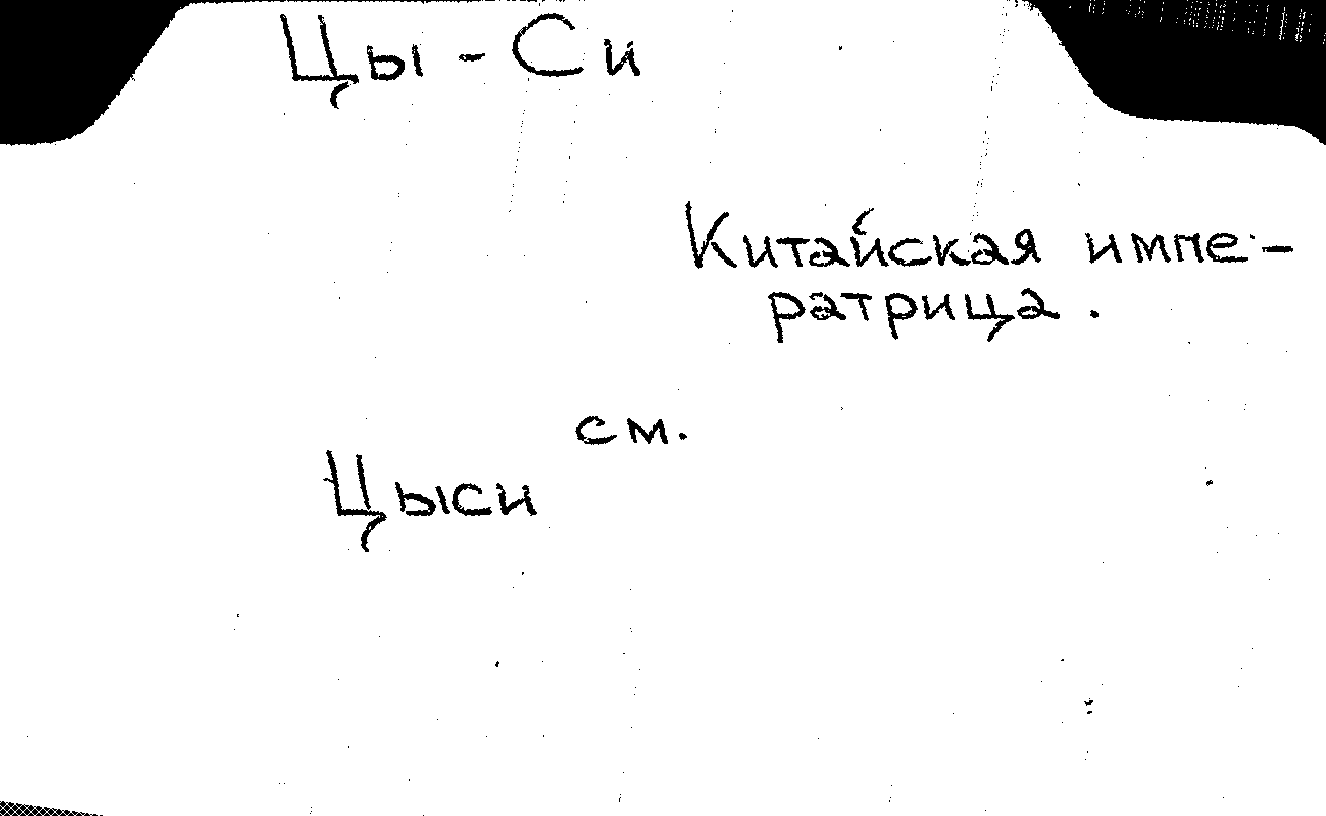 Цы - Си
Китайская импе-
ратрица.
см.
Цыси